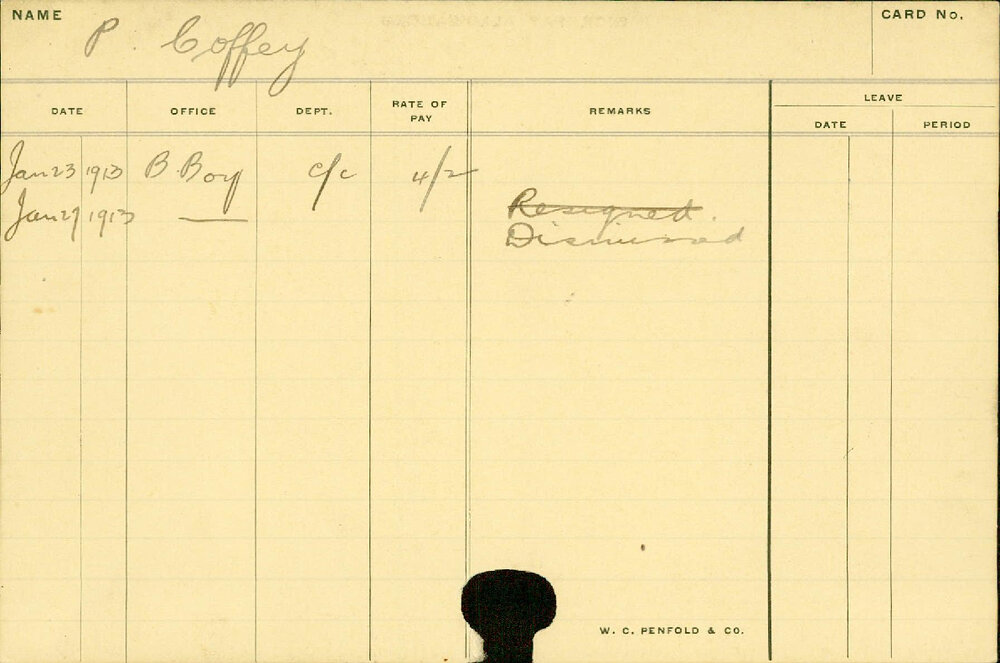 NAME P. Coffey CARD No.
DATE OFFICE DEPT. RATE OF PAY REMARKS LEAVE
DATE PERIOD
Jan 23 1913 B. Boy c/c 4/2
Jan 29 1913 — Resigned.
Dismissed
W. C. PENFOLD & CO.